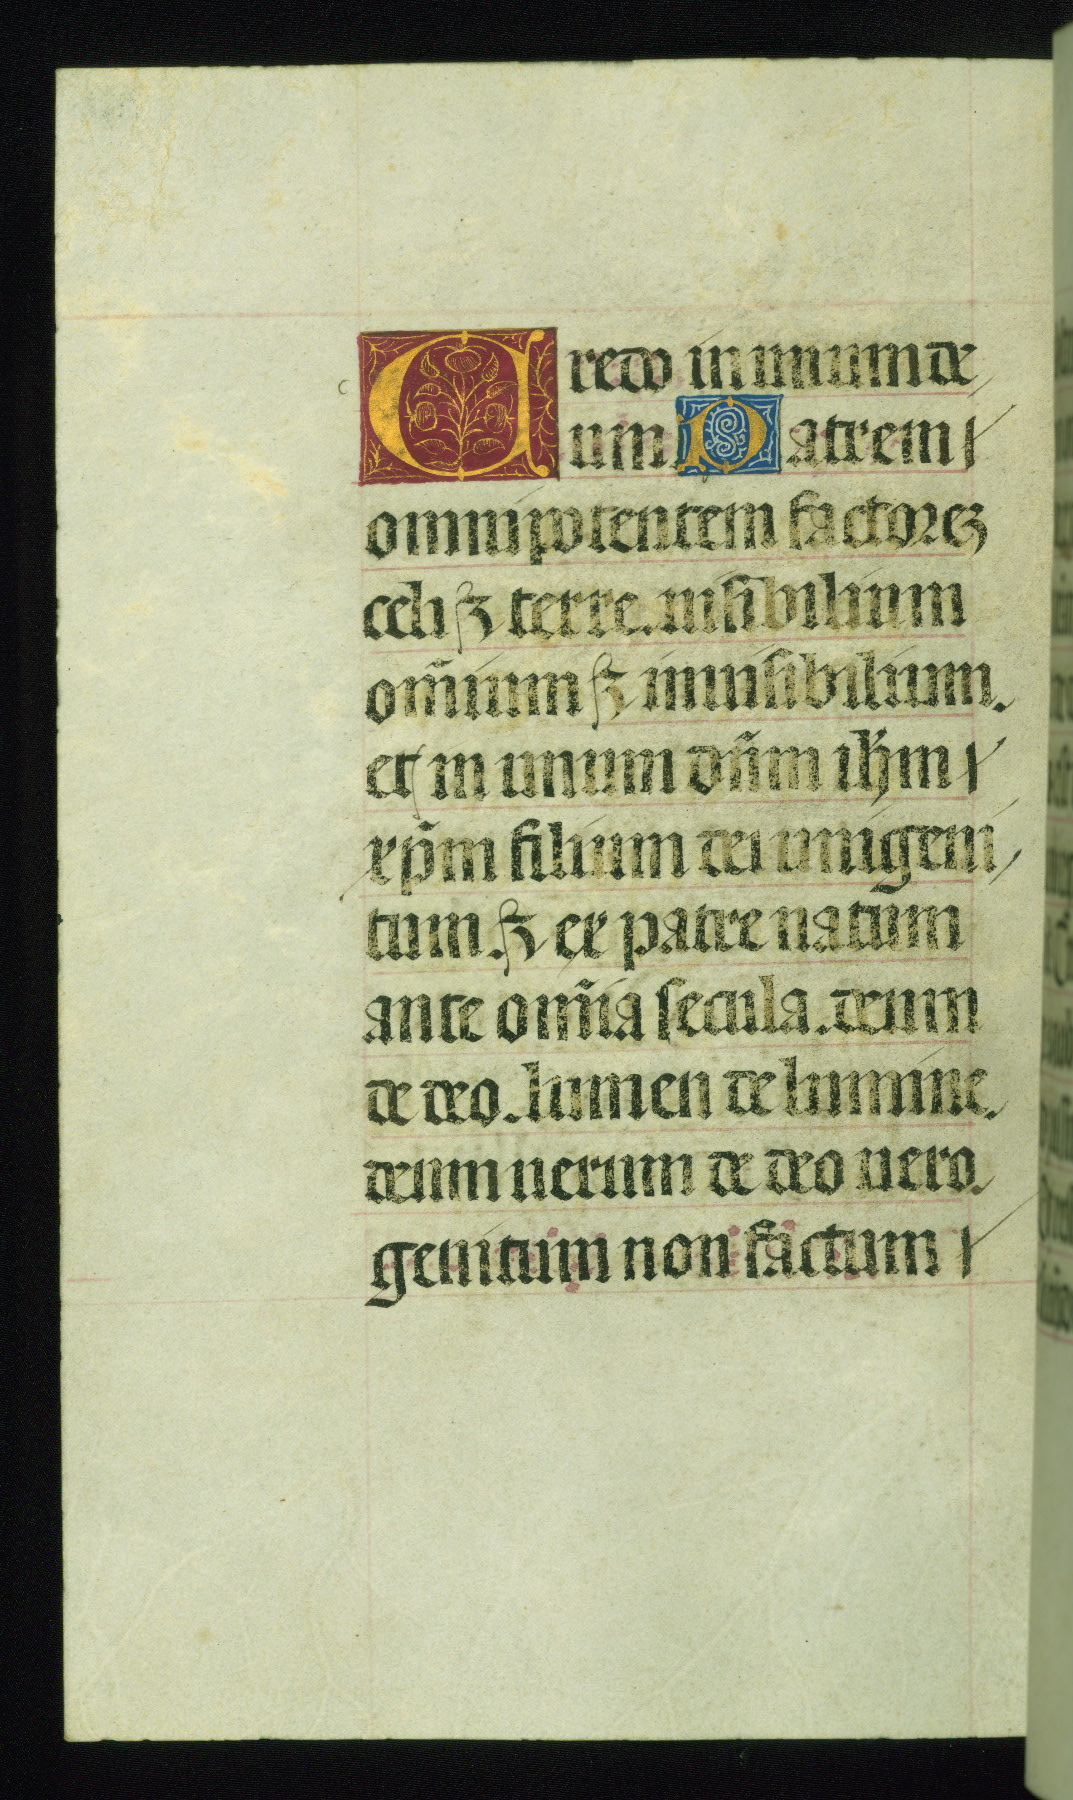 Credo in unum de
um. Patrem
omnipotentem factorez
celi ⁊ terre. uisibilium
om̅ium ⁊ inuisibilium.
et in unum dn̅m ih̅m
xp̅m filium dei unigeni
tum. ⁊ ex patre natum
ante om̅ia secula. deum
de deo. lumen de lumine.
deum uerum de deo uero.
genitum non factum